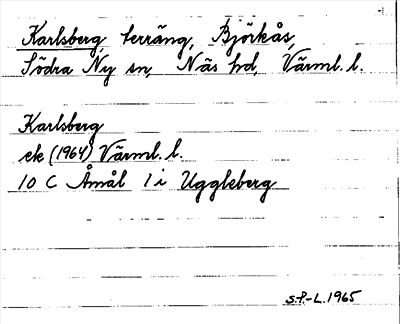 Karlsberg, terräng, Björkås,
Södra Ny sn, Näs hd, Värml. l.
Karlsberg
ek (1964) Värml. l.
10 C Åmål 1 i Uggleberg
S.P.-L. 1965